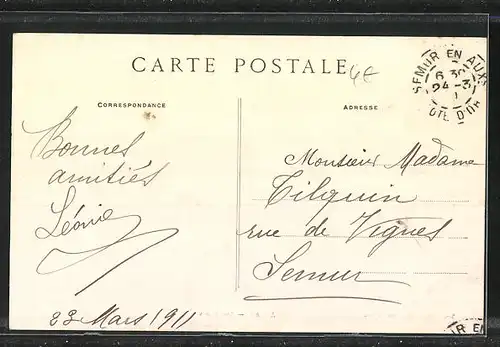 CARTE POSTALE
4€
CORRESPONDANCE
ADRESSE
SEMUR EN AUX
6 30
24 -3
11
COTE D'OR
Bonnes
amitiés
Léonie
23 Mars 1911
Monsieur Madame
Tilquin
rue de Vignes
Semur
UR EN